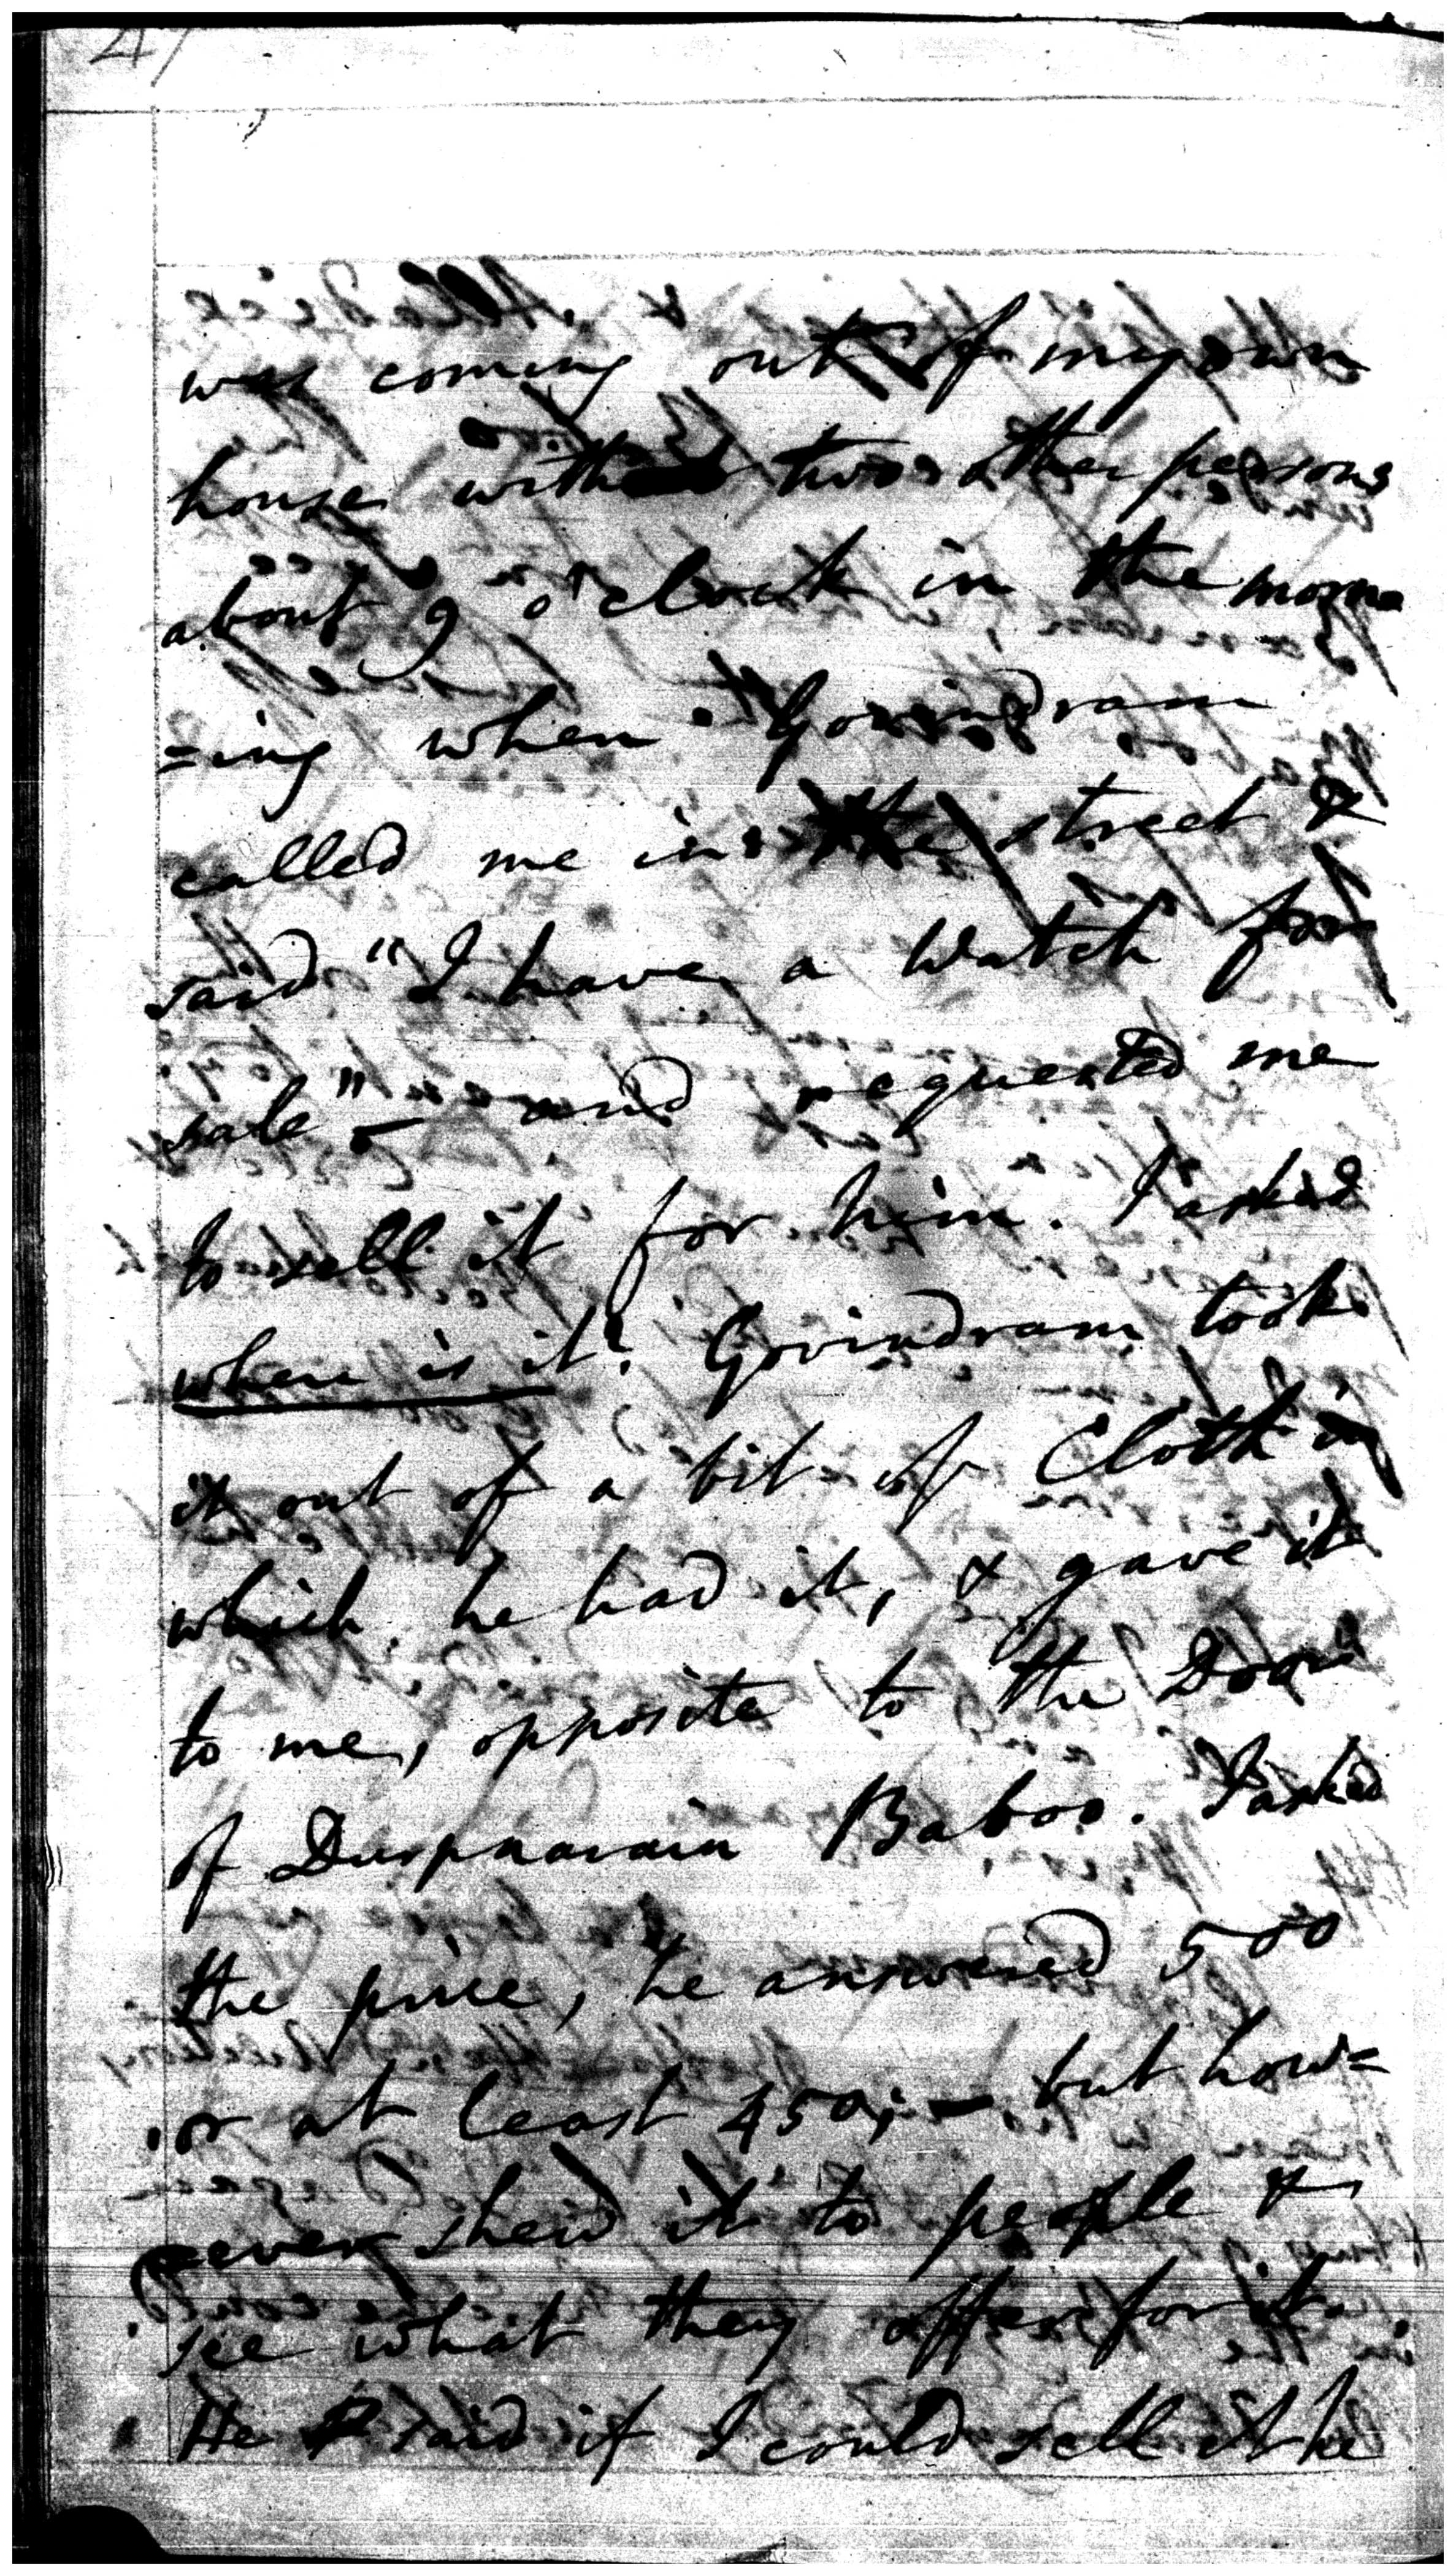 47
was coming out of my own
house with two other persons
about 9 o'clock in the morn
=ing when Govindram
called me in the street &
said "I have a Watch for
sale" – and requested me
to sell it for him. I asked
where is it? Govindram took
it out of a bit of Cloth in
which he had it, & gave it
to me, opposite to the Door
of Durpnarain Baboo. I asked
the price, he answered 500
or at least 450; – but how=
=ever shew it to people &
see what they offer for it.
He said if I could sell it he